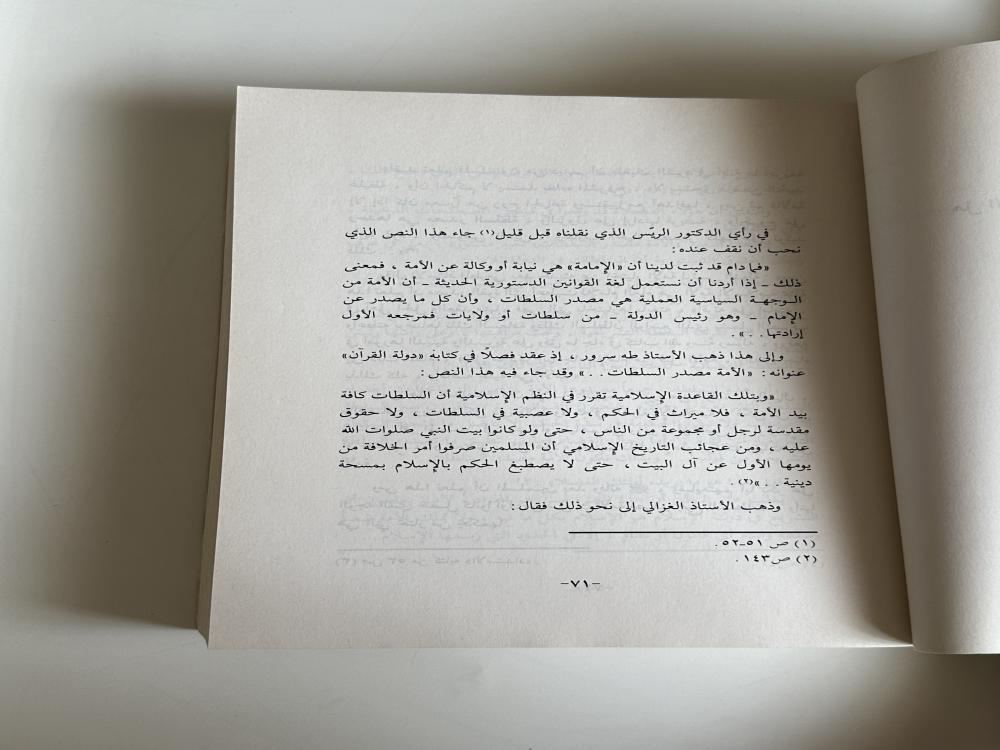 في رأي الدكتور الريّس الذي نقلناه قبل قليل(١) جاء هذا النص الذي
نحب أن نقف عنده:
«فما دام قد ثبت لدينا أن «الإمامة» هي نيابة أو وكالة عن الأمة ، فمعنى
ذلك ـ إذا أردنا أن نستعمل لغة القوانين الدستورية الحديثة ـ أن الأمة من
الوجهة السياسية العملية هي مصدر السلطات ، وأن كل ما يصدر عن
الإمام ـ وهو رئيس الدولة ـ من سلطات أو ولايات فمرجعه الأول
إرادتها . . » .
وإلى هذا ذهب الأستاذ طه سرور ، إذ عقد فصلاً في كتابه «دولة القرآن»
عنوانه : «الأمة مصدر السلطات . . » وقد جاء فيه هذا النص :
«وبتلك القاعدة الإسلامية تقرر في النظم الإسلامية أن السلطات كافة
بيد الأمة ، فلا ميراث في الحكم ، ولا عصبية في السلطات ، ولا حقوق
مقدسة لرجل أو مجموعة من الناس ، حتى ولو كانوا بيت النبي صلوات الله
عليه ، ومن عجائب التاريخ الإسلامي أن المسلمين صرفوا أمر الخلافة من
يومها الأول عن آل البيت ، حتى لا يصطبغ الحكم بالإسلام بمسحة
دينية . . »(٢) .
وذهب الأستاذ الغزالي إلى نحو ذلك فقال :
(١) ص ٥١ـ٥٢ .
(٢) ص ١٤٣ .
-٧١-